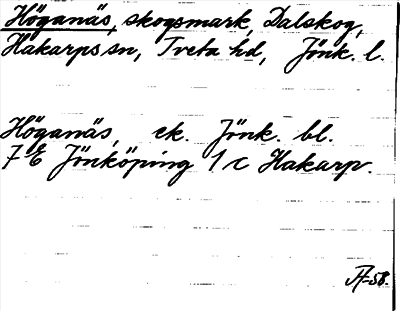 Höganäs, skogsmark, Dalskog,
Hakarps sn, Tveta hd, Jönk. l.
Höganäs, ek. Jönk. bl.
7 E Jönköping 1 c Hakarp.